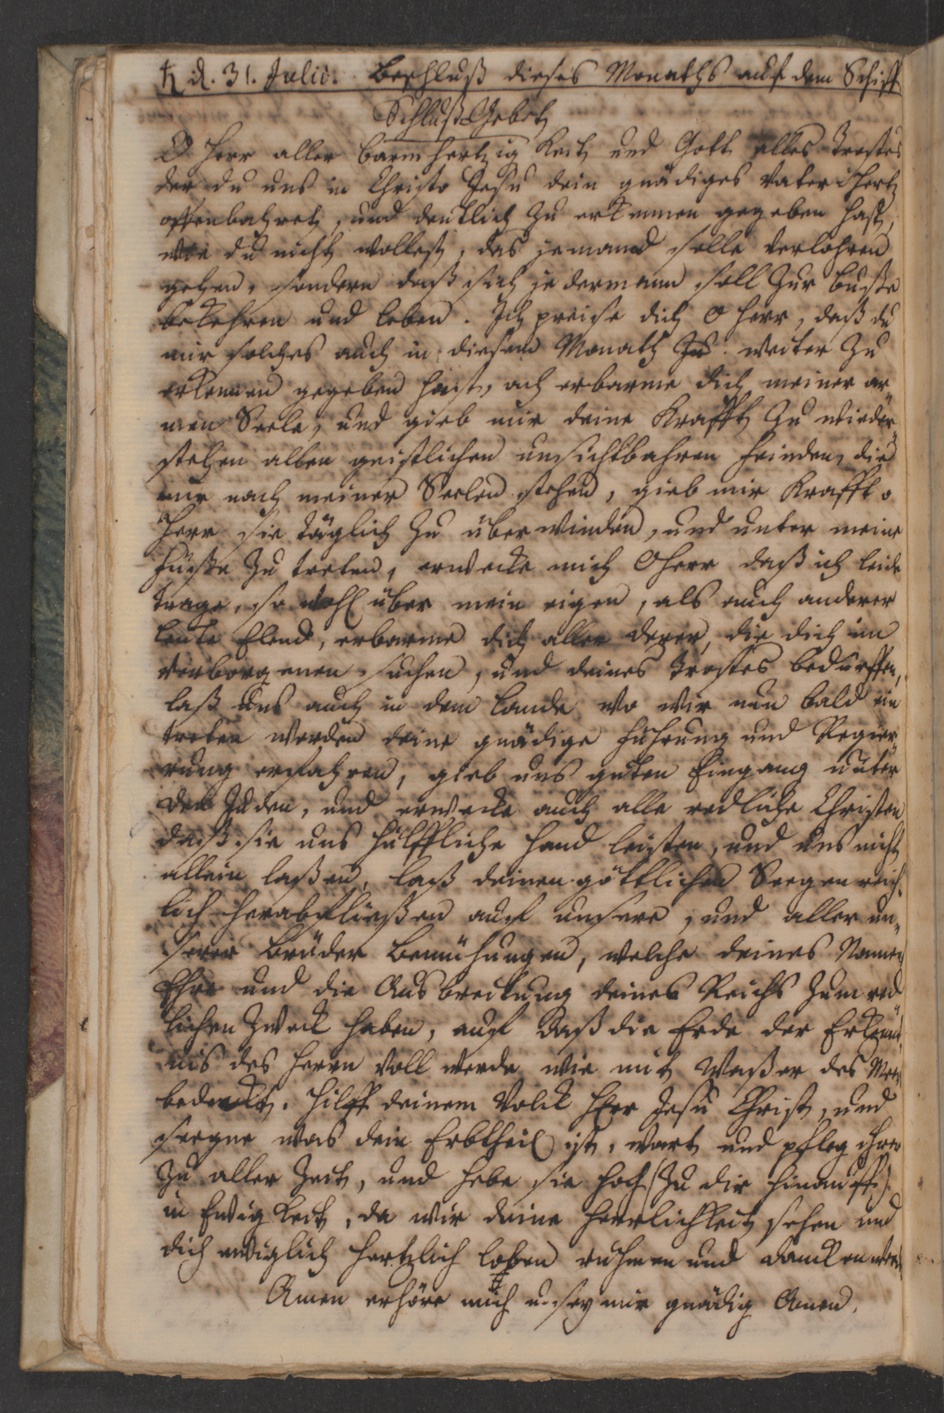 ♄ d. 31. Julii. Beschluß dieses Monaths auf dem Schiff
Schluß-Gebeth
O Herr aller barmhertzigkeit und Gott alles Trostes
der du uns in Christo Jesu dein gnädiges Vater Hertz
offenbahret, und deutlich zu erkennen gegeben hast,
wie du nicht wollest, das jemand solle verlohren
gehen, sondern daß sich jedermann soll zur buße
bekehren und leben. Ich preise dich o Herr, daß du
mir solches auch in diesem Monath weiter zu
erkennen gegeben hast, ach erbarme dich meiner ar
men Seele, und gieb mir deine Krafft zu wieder
stehen allen geistlichen unsichtbahren feinden, die
mir nach meiner Seelen stehen, gieb mir Krafft o
Herr sie täglich zu überwinden, und unter meine
füeße zu treten, erwecke mich O Herr daß ich leide
trage, so wohl über mein eigen, als auch anderer
leute Elend, erbarme dich aller derer, die dich im
verborgenen suchen, und deines trostes bedürffen,
laß uns auch in dem Lande wo wir nun bald ein
treten werden deine gnädige führung und Regie
rung erfahren, gieb uns guten Eingang unter
den Juden, und erwecke auch alle redliche Christen
daß sie uns hülffliche Hand leisten, und uns nicht
allein laßen, laß deinen göttlichen Seegen reich
lich herabfließen auf unsere, und aller un
serer brüder bemühungen, welche deines Namen
Ehre und die Ausbreitung deines Reichs zum red
lichen Zweck haben, auf daß die Erde der Erkänt
nis des Herrn voll werde wie mit Waßer des Meer
bedeckt. Hilff deinem Volck Herr Jesu Christ, und
seegne was dein Erbtheil ist, wart und pfleg ihr
zu aller Zeit, und hebe sie hoch (zu dir hinauff)
in Ewigkeit, da wir deine Herrlichkeit sehen und
dich ewiglich hertzlich loben rühmen und dancken
Amen erhöre mich u. sey mir gnädig Amen.